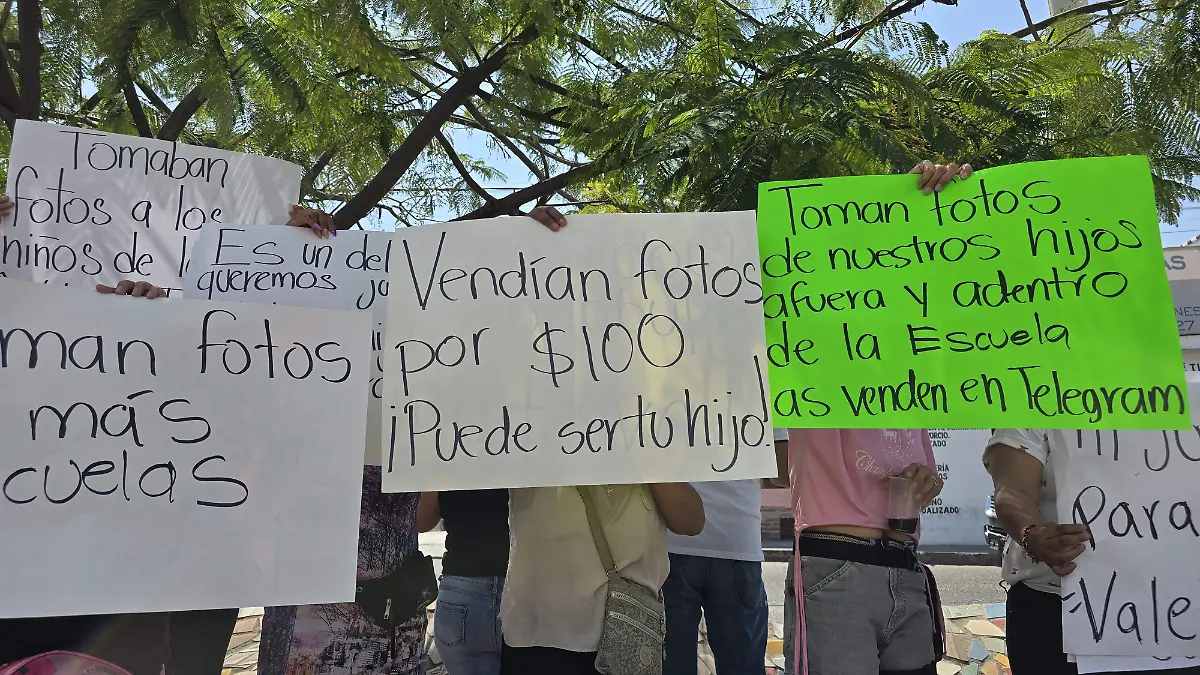 Tomaban
fotos a los
niños de
Es un
queremos
man fotos
más
cuelas
Vendían fotos
por $100
¡Puede ser tu hijo!
Toman fotos
de nuestros hijos
afuera y adentro
de la Escuela
as venden en Telegram
Para
Vale